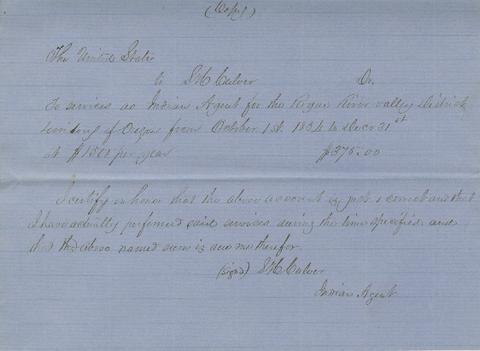 (Copy)
The United States
to S H Culver Dr.
To services as Indian Agent for the Rogue River valley District
Territory of Oregon from October 1st. 1854 to Decr 31st
at $1500 per year $375.00
I certify on honor that the above account is just & correct and that
I have actually performed said services during the time specified and
that the above named sum is due me therefor.
(signed) S H Culver
Indian Agent